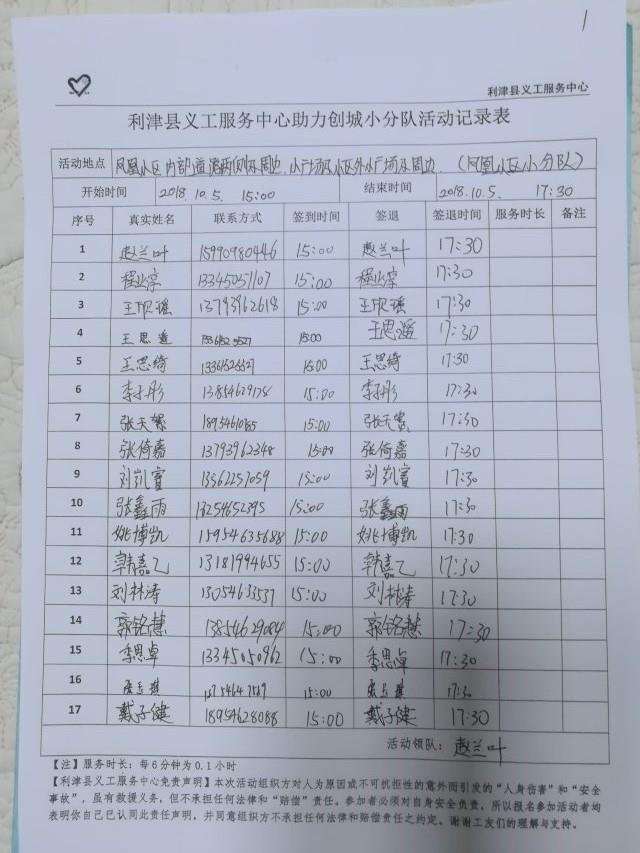 1
利津县义工服务中心
利津县义工服务中心助力创城小分队活动记录表
活动地点 凤凰小区内部道路两侧及周边、小广场及小区外小广场及周边、(凤凰小区小分队)
开始时间 2018.10.5. 15:00 结束时间 2018.10.5. 17:30
序号 真实姓名 联系方式 签到时间 签退 签退时间 服务时长 备注
1 赵兰叶 15990980446 15:00 赵兰叶 17:30
2 13345051107 15:00 17:30
3 王欣瑶 13793962618 15:00 王欣瑶 17:30
4 王思遥 15:00 王思遥 17:30
5 王思绮 15:00 王思绮 17:30
6 15:00 17:30
7 15:00 17:30
8 张倚嘉 13793962348 15:00 张倚嘉 17:30
9 13562257059 15:00 17:30
10 张鑫雨 13254652395 15:00 张鑫雨 17:30
11 姚博凯 15954635688 15:00 姚博凯 17:30
12 韩嘉乙 13181994655 15:00 韩嘉乙 17:30
13 刘林涛 13054633537 15:00 刘林涛 17:30
14 郭铭慧 13854629084 15:00 郭铭慧 17:30
15 季思卓 13345050962 15:00 季思卓 17:30
16 15:00 17:30
17 戴子健 18954628088 15:00 戴子健 17:30
活动领队: 赵兰叶
【注】服务时长:每6分钟为0.1小时
【利津县义工服务中心免责声明】本次活动组织方对人为原因或不可抗担性的意外而引发的“人身伤害”和“安全
事故”,虽有救援义务,但不承担任何法律和“赔偿”责任。参加者必须对自身安全负责,所以报名参加活动者均
表明你自己已认同此责任声明,并同意组织方不承担任何法律和赔偿责任之约定。谢谢工友们的理解与支持。